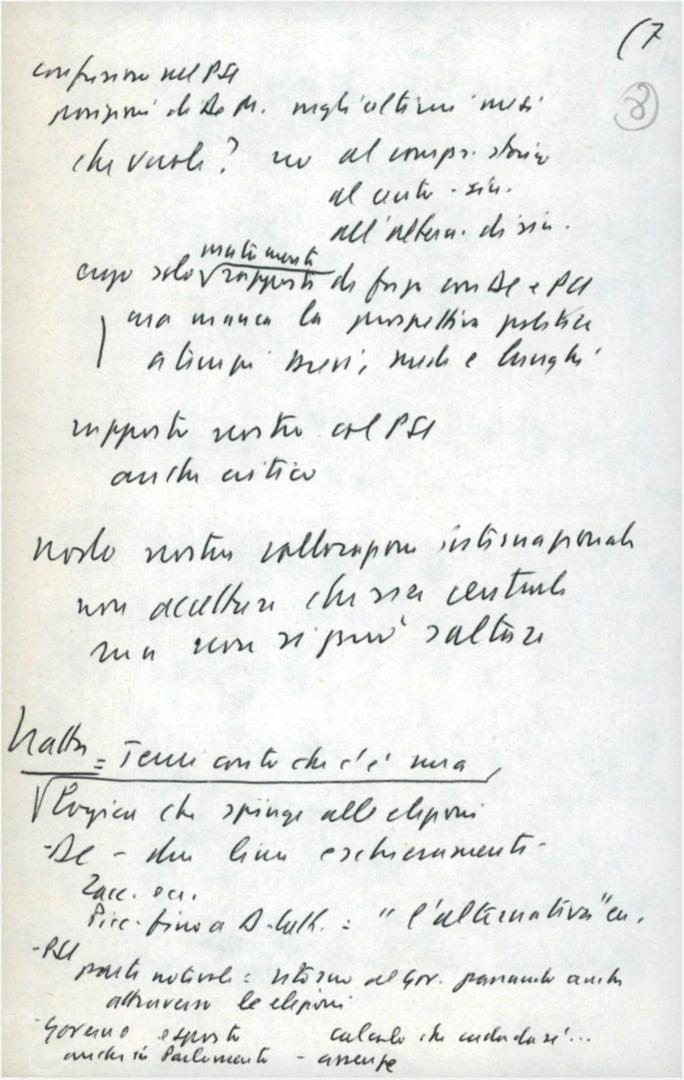 (7
8
confusione nel PSI
posizioni di De M. negli ultimi mesi
che vuole? no al compr. storico
al centro-sin.
all'altern. di sin.
mutamenti
solo √ rapporti di forza con DC e PCI
ma manca la prospettiva politica
a tempi brevi, medi e lunghi
rapporto nostro col PSI
anche critico
nodo nostra collocazione internazionale
non accettare che sia centrale
ma non si può saltare
Natta = Tener conto che c'è una
√ logica che spinge alle elezioni
-DC - due linee e schieramenti -
Zacc. ecc.
Picc. fino a D-Catt. = "l'alternativa" ecc.
-PSI
punti notevoli = ritorno al Gov. passando anche
attraverso le elezioni
-Governo esposto calcolo che cada da sé...
anche in Parlamento - assenze